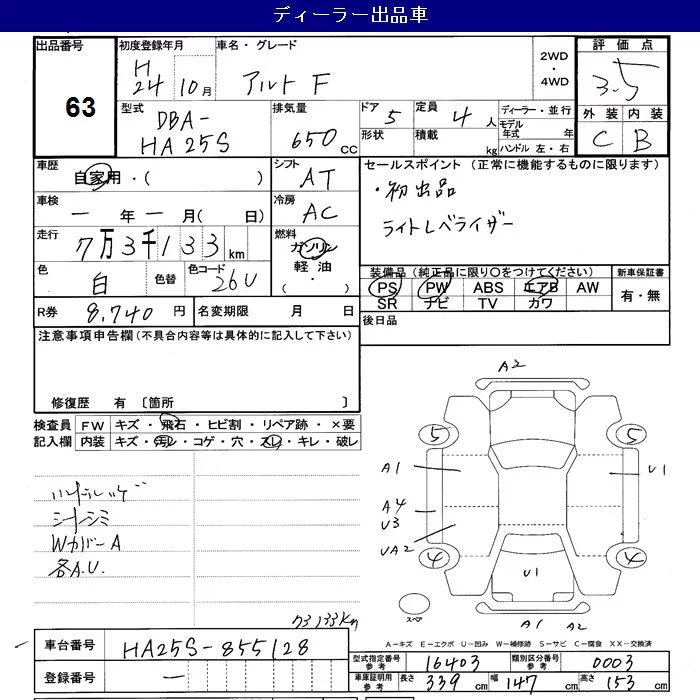 ディーラー出品車
出品番号 63
初度登録年月 H24 10月
車名・グレード アルト F
2WD・4WD
評価点 3.5
外装 C 内装 B
型式 DBA-HA25S
排気量 650cc
ドア 5 定員 4人
形状 積載 kg
ディーラー・並行
モデル年式 年
ハンドル 左・右
車歴 自家用・( )
シフト AT
車検 ー年ー月( 日)
冷房 AC
走行 7万3千133km
燃料 ガソリン 軽油 ( ・ )
色 白 色替 色コード 26U
R券 8,740円 名変期限 月 日
セールスポイント (正常に機能するものに限ります)
・初出品
ライトレベライザー
装備品(純正品に限り○をつけてください) 新車保証書
PS PW ABS エアB AW 有・無
SR ナビ TV カワ
後日品
注意事項申告欄(不具合内容等は具体的に記入して下さい)
修復歴 有 〔箇所 〕
検査員記入欄 FW キズ・飛石・ヒビ割・リペア跡・×要
内装 キズ・汚レ・コゲ・穴・スレ・キレ・破レ
シートシミ
WカバーA
各A.U.
73133Km
A2
5 5
A1 U1
A4
U3
UA2
4 4
U1
スペア
A1 A2
A-キズ E-エクボ U-凹み W-補修跡 S-サビ C-腐食 XX-交換済
車台番号 HA25S-855128
登録番号 ー
型式指定番号参考 16403 類別区分番号参考 0003
車庫証明用参考 長さ 339cm 幅 147cm 高さ 153cm